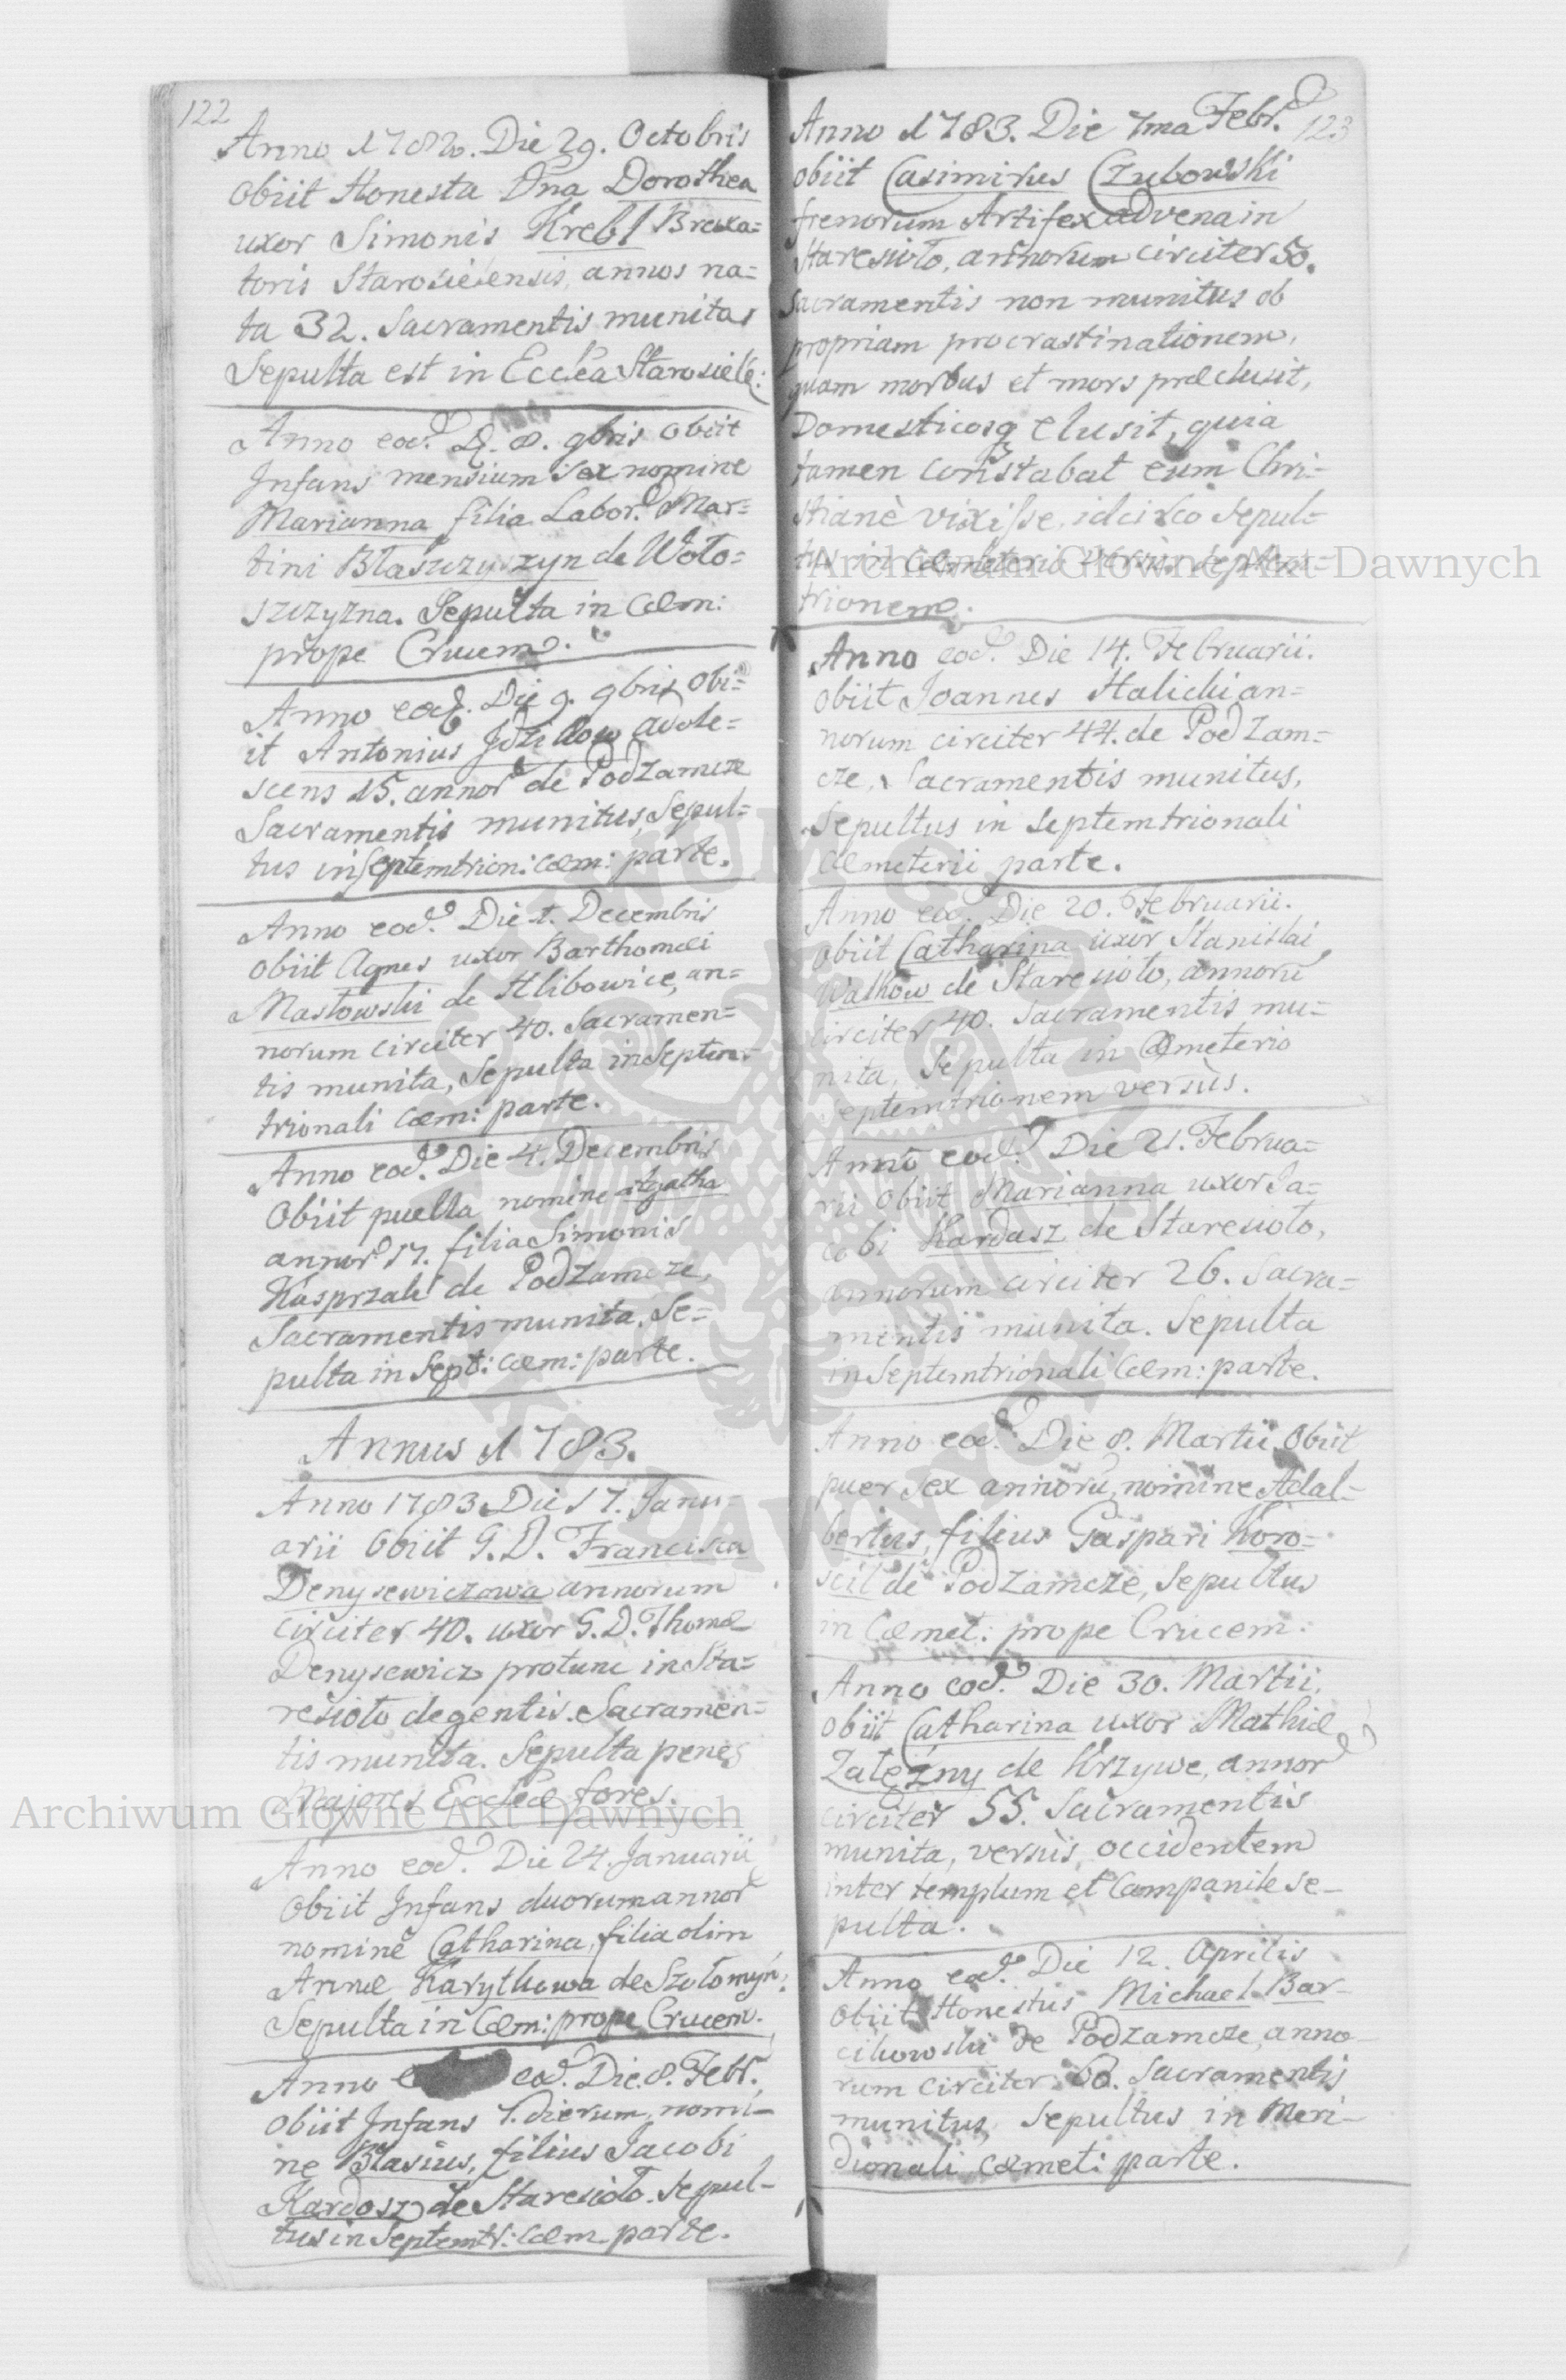 122
Anno 1782. Die 29. Octobris
obiit Honesta Dna Dorothea
uxor Simonis Krebl Braxa=
toris Starosielensis, annos na=
ta 32. Sacramentis munita
Sepulta est in Eccl̃ea Starosiele:
Anno eod. D. 8. 9bris obiit
Infans mensium sex nomine
Marianna filia Labor. Mar=
tini Błaszczyszyn de Woło=
szczyzna. Sepulta in Cœm:
prope Crucem.
Anno eod. Die 9. 9bris obi=
it Antonius adole=
scens 15. annor de Podzamcze
Sacramentis munitus, Sepul=
tus in Septemtrion: cœm: parte.
Anno eod. Die 1. Decembris
obiit Agnes uxor Barthomæi
Masłowski de Hlibowice, an=
norum circiter 40. Sacramen=
tis munita, Sepulta in Septem=
trionali cœm: parte.
Anno eod. Die 4. Decembris
Obiit puella nomine Agatha
annor 17. filia Simonis
Kasprzak de Podzamcze,
Sacramentis munita. Se=
pulta in Sept: cœm: parte.
Annus 1783.
Anno 1783 Die 17. Janu=
arii Obiit G. D. Francisca
Denysewiczowa annorum
circiter 40. uxor G. D. Thomæ
Denysewicz protunc in Sta=
resioło degentis. Sacramen=
tis munita. Sepulta penes
Majores Eccl̃eæ fores.
Anno eod. Die 24. Januarii
Obiit Infans duorum annor
nomine Catharina, filia olim
Annæ Karythowa de Szołomyń:
Sepulta in Cœm: prope Crucem.
Anno eod. Die 8. Febr.
obiit Infans 7. dierum, nomi=
ne Blasius, filius Jacobi
Kardosz de Staresioło. Sepul=
tus in Septemtr: cœm. parte.
123
Anno 1783. Die 7ma Febr.
obiit Casimirus Czubowski
frenorum Artifex advena in
Staresioło, annorum circiter 50.
Sacramentis non munitus ob
propriam procrastinationem,
quam morbus et mors præclusit,
Domesticosq elusit, quia
tamen constabat eum Chri=
stianè vixisse, idcirco Sepul=
tus in Cœmeterio versùs Septem=
trionem.
Anno eod. Die 14. Februarii.
obiit Joannes Halicki an=
norum circiter 44. de Podzam=
cze, Sacramentis munitus,
Sepultus in Septemtrionali
Cœmeterii parte.
Anno eod. Die 20. Februarii.
obiit Catharina uxor Stanislai
Walkow de Staresioło, annorũ
circiter 40. Sacramentis mu=
nita, Sepulta in Cœmeterio
Septemtrionem versùs.
Anno eod. Die 21. Februa=
rii obiit Marianna uxor Ja=
cobi Kardasz de Staresioło,
annorum circiter 26. Sacra=
mentis munita. Sepulta
in Septemtrionali Cœm: parte.
Anno eod. Die 8. Martii Obiit
puer sex annorũ, nomine Adal=
bertus, filius Gaspari Koro=
scil de Podzamcze, Sepultus
in Cœmet: prope Crucem.
Anno eod. Die 30. Martii.
obiit Catharina uxor Mathiæ
Zaležny de Krzywe, annor
circiter 55. Sacramentis
munita, versùs occidentem
inter templum et Campanile se=
pulta.
Anno eod. Die 12. Aprilis
Obiit Honestus Michael Bar=
cikowski de Podzamcze, anno=
rum circiter 60. Sacramentis
munitus, Sepultus in Meri=
dionali cœmet: parte.
Archiwum Główne Akt Dawnych
Archiwum Główne Akt Dawnych
ARCHIWUM GŁÓWNE AKT DAWNYCH